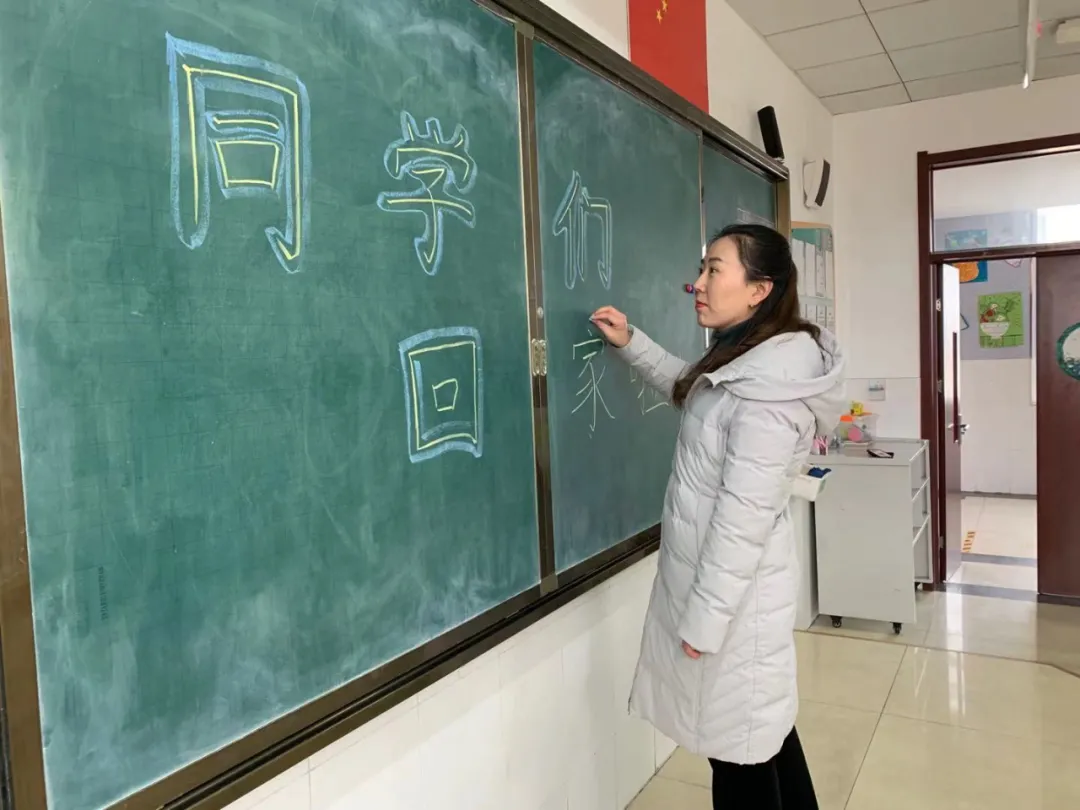 同学们
回家